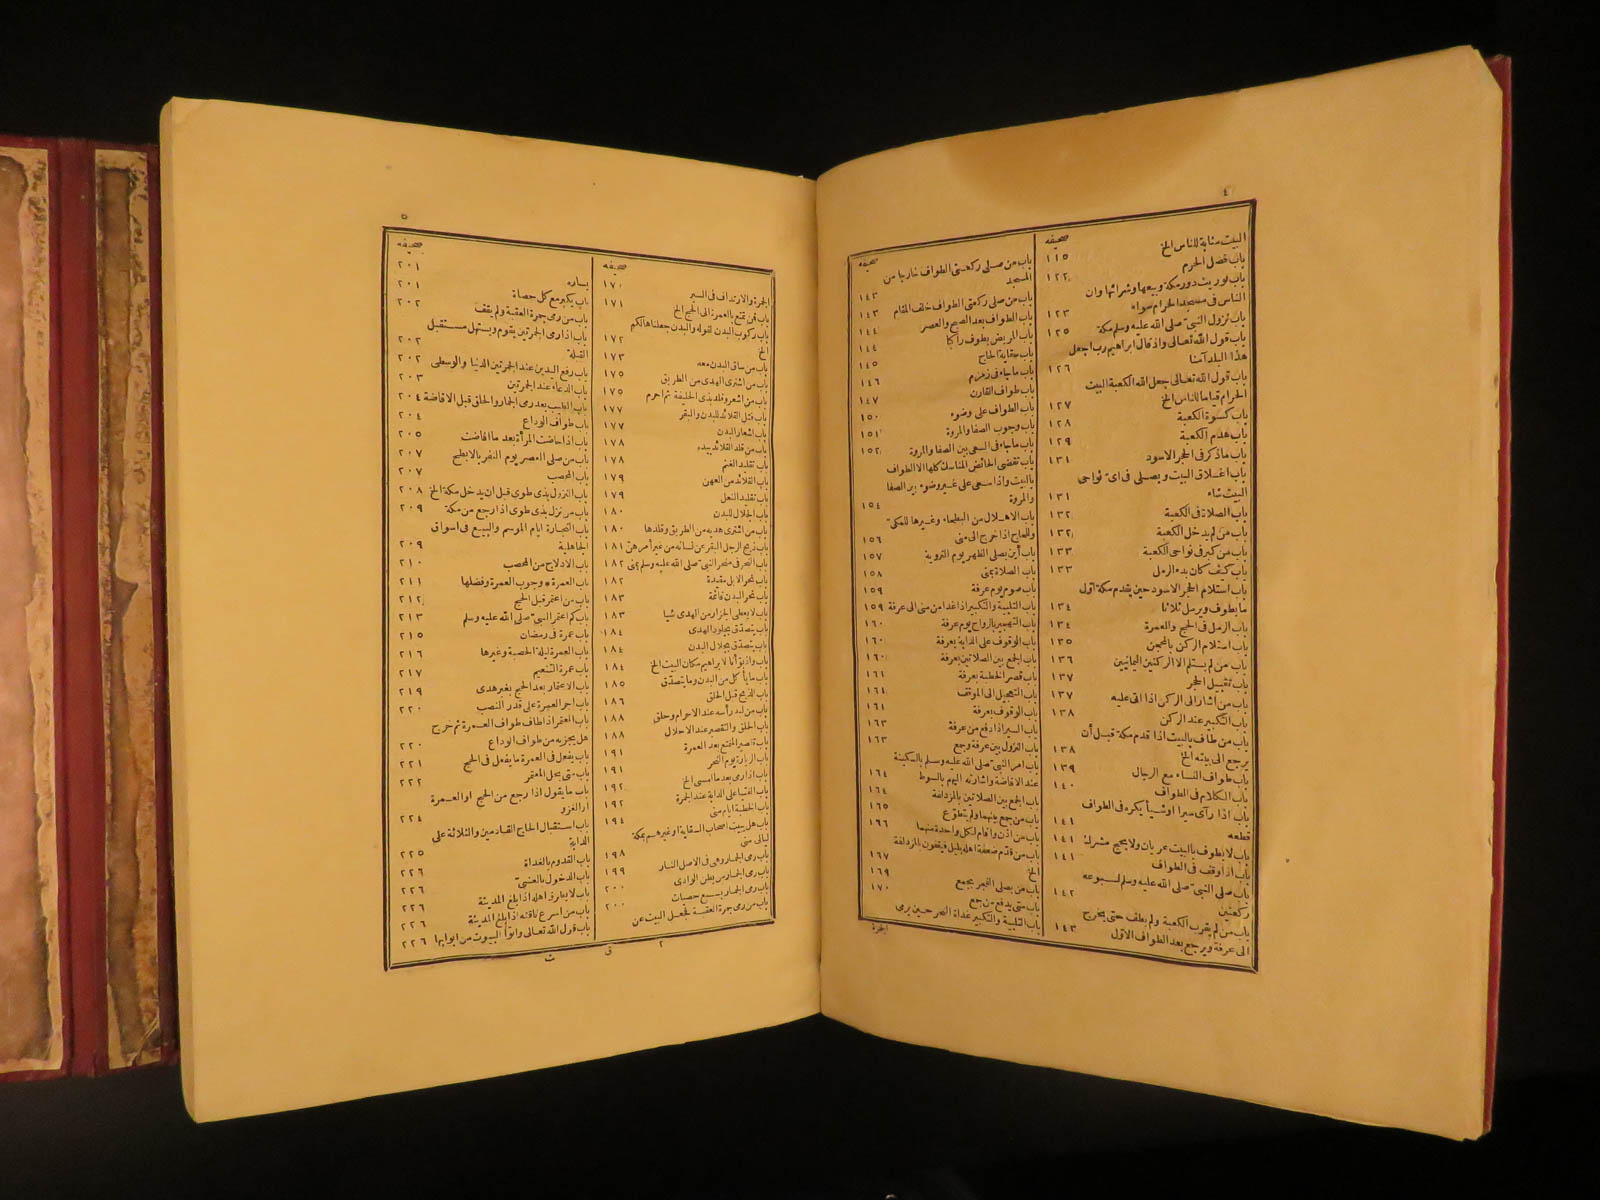 ٤
صحيفه
البيت مثابة للناس الخ
١١٥
باب فضل الحرم
١٢٢
باب توريث دور مكة وبيعها وشرائها وان
الناس فى مسجد الحرام سواء
١٢٣
باب نزول النبى صلى الله عليه وسلم مكة
١٢٥
باب قول الله تعالى واذ قال ابراهيم رب اجعل
هذا البلد آمنا
١٢٦
باب قول الله تعالى جعل الله الكعبة البيت
الحرام قياما للناس الخ
١٢٧
باب كسوة الكعبة
١٢٨
باب هدم الكعبة
١٢٩
باب ما ذكر فى الحجر الاسود
١٣١
باب اغلاق البيت ويصلى فى اى نواحى
البيت شاء
١٣١
باب الصلاة فى الكعبة
١٣٢
باب من لم يدخل الكعبة
١٣٢
باب من كبر فى نواحى الكعبة
١٣٣
باب كيف كان بدء الرمل
١٣٣
باب استلام الحجر الاسود حين يقدم مكة اول
ما يطوف ويرمل ثلاثا
١٣٤
باب الرمل فى الحج والعمرة
١٣٤
باب استلام الركن بالمحجن
١٣٥
باب من لم يستلم الا الركنين اليمانيين
١٣٦
باب تقبيل الحجر
١٣٧
باب من اشار الى الركن اذا اتى عليه
١٣٧
باب التكبير عند الركن
١٣٨
باب من طاف بالبيت اذا قدم مكة قبل أن
يرجع الى بيته الخ
١٣٨
باب طواف النساء مع الرجال
١٣٩
باب الكلام فى الطواف
١٤٠
باب اذا رآى سيرا او شيأ يكره فى الطواف
قطعه
١٤١
باب لا يطوف بالبيت عريان ولا يحج مشرك
١٤١
باب اذا وقف فى الطواف
١٤١
باب صلى النبى صلى الله عليه وسلم لسبوعه
ركعتين
١٤٢
باب من لم يقرب الكعبة ولم يطف حتى يخرج
الى عرفة ويرجع بعد الطواف الاول
١٤٣
صحيفه
باب من صلى ركعتى الطواف خارجا من
المسجد
١٤٣
باب من صلى ركعتى الطواف خلف المقام
١٤٣
باب الطواف بعد الصبح والعصر
١٤٤
باب المريض يطوف راكبا
١٤٤
باب سقاية الحاج
١٤٥
باب ما جاء فى زمزم
١٤٦
باب طواف القارن
١٤٧
باب الطواف على وضوء
١٥٠
باب وجوب الصفا والمروة
١٥١
باب ما جاء فى السعى بين الصفا والمروة
١٥٢
باب تقضى الحائض المناسك كلها الا الطواف
بالبيت واذا سعى على غير وضوء بين الصفا
والمروة
١٥٤
باب الاهلال من البطحاء وغيرها للمكى
وللحاج اذا خرج الى منى
١٥٦
باب أين يصلى الظهر يوم التروية
١٥٧
باب الصلاة بمنى
١٥٨
باب صوم يوم عرفة
١٥٩
باب التلبية والتكبير اذا غدا من منى الى عرفة
١٥٩
باب التهجير بالرواح يوم عرفة
١٦٠
باب الوقوف على الدابة بعرفة
١٦٠
باب الجمع بين الصلاتين بعرفة
١٦٠
باب قصر الخطبة بعرفة
١٦١
باب التعجيل الى الموقف
١٦١
باب الوقوف بعرفة
١٦١
باب السير اذا دفع من عرفة
١٦٣
باب النزول بين عرفة وجمع
١٦٣
باب امر النبى صلى الله عليه وسلم بالسكينة
عند الافاضة واشارته اليهم بالسوط
١٦٤
باب الجمع بين الصلاتين بالمزدلفة
١٦٤
باب من جمع بينهما ولم يتطوع
١٦٥
باب من اذن واقام لكل واحدة منهما
١٦٦
باب من قدم ضعفة اهله بليل فيقفون بالمزدلفة
الخ
١٦٧
باب من يصلى الفجر بجمع
١٦٩
باب متى يدفع من جمع
١٧٠
باب التلبية والتكبير غداة النحر حين يرمى
الجمرة
٥
صحيفه
الجمرة والارتداف فى السير
١٧٠
باب فمن تمتع بالعمرة الى الحج الخ
١٧١
باب ركوب البدن لقوله والبدن جعلناها لكم
الخ
١٧٢
باب من ساق البدن معه
١٧٣
باب من اشترى الهدى من الطريق
١٧٥
باب من اشعر وقلد بذى الحليفة ثم احرم
١٧٥
باب فتل القلائد للبدن والبقر
١٧٧
باب اشعار البدن
١٧٧
باب من قلد القلائد بيده
١٧٨
باب تقليد الغنم
١٧٨
باب القلائد من العهن
١٧٩
باب تقليد النعل
١٧٩
باب الجلال للبدن
١٨٠
باب من اشترى هديه من الطريق وقلدها
١٨٠
باب ذبح الرجل البقر عن نسائه من غير أمرهن
١٨١
باب النحر فى منحر النبى صلى الله عليه وسلم بمنى
١٨٢
باب نحر الابل مقيدة
١٨٢
باب نحر البدن قائمة
١٨٣
باب لا يعطى الجزار من الهدى شيا
١٨٣
باب يتصدق بجلود الهدى
١٨٤
باب يتصدق بجلال البدن
١٨٤
باب واذ بوّأنا لابراهيم مكان البيت الخ
١٨٤
باب ما يأكل من البدن وما يتصدق
١٨٥
باب الذبح قبل الحلق
١٨٦
باب من لبد رأسه عند الاحرام وحلق
١٨٨
باب الحلق والتقصير عند الاحلال
١٨٨
باب تقصير المتمتع بعد العمرة
١٩١
باب الزيارة يوم النحر
١٩١
باب اذا رمى بعد ما امسى الخ
١٩٢
باب الفتيا على الدابة عند الجمرة
١٩٢
باب الخطبة ايام منى
١٩٤
باب هل يبيت اصحاب السقاية او غيرهم بمكة
ليالى منى
١٩٨
باب رمى الجمار وهى فى الاصل النار
١٩٩
باب رمى الجمار من بطن الوادى
٢٠٠
باب رمى الجمار بسبع حصيات
٢٠٠
باب من رمى جمرة العقبة فجعل البيت عن
صحيفه
يساره
٢٠١
باب يكبر مع كل حصاة
٢٠١
باب من رمى جمرة العقبة ولم يقف
٢٠٢
باب اذا رمى الجمرتين يقوم ويستهل مستقبل
القبلة
٢٠٢
باب رفع اليدين عند الجمرتين الدنيا والوسطى
٢٠٢
باب الدعاء عند الجمرتين
٢٠٣
باب الطيب بعد رمى الجمار والحلق قبل الافاضة
٢٠٤
باب طواف الوداع
٢٠٤
باب اذا حاضت المرأة بعد ما افاضت
٢٠٥
باب من صلى العصر يوم النفر بالابطح
٢٠٧
باب المحصب
٢٠٧
باب النزول بذى طوى قبل ان يدخل مكة الخ
٢٠٨
باب من نزل بذى طوى اذا رجع من مكة
٢٠٩
باب التجارة ايام الموسم والبيع فى اسواق
الجاهلية
٢٠٩
باب الادلاج من المحصب
٢١٠
باب العمرة * وجوب العمرة وفضلها
٢١١
باب من اعتمر قبل الحج
٢١٢
باب كم اعتمر النبى صلى الله عليه وسلم
٢١٣
باب عمرة فى رمضان
٢١٥
باب العمرة ليلة الحصبة وغيرها
٢١٦
باب عمرة التنعيم
٢١٧
باب الاعتمار بعد الحج بغير هدى
٢١٩
باب اجر العمرة على قدر النصب
٢٢٠
باب المعتمر اذا طاف طواف العمرة ثم خرج
هل يجزيه من طواف الوداع
٢٢٠
باب يفعل فى العمرة ما يفعل فى الحج
٢٢١
باب متى يحل المعتمر
٢٢٢
باب ما يقول اذا رجع من الحج او العمرة
او الغزو
٢٢٤
باب استقبال الحاج القادمين والثلاثة على
الدابة
٢٢٥
باب القدوم بالغداة
٢٢٦
باب الدخول بالعشى
٢٢٦
باب لا يطرق اهله اذا بلغ المدينة
٢٢٦
باب من اسرع ناقته اذا بلغ المدينة
٢٢٦
باب قول الله تعالى وائتوا البيوت من ابوابها
٢٢٦
٢
ق
ث